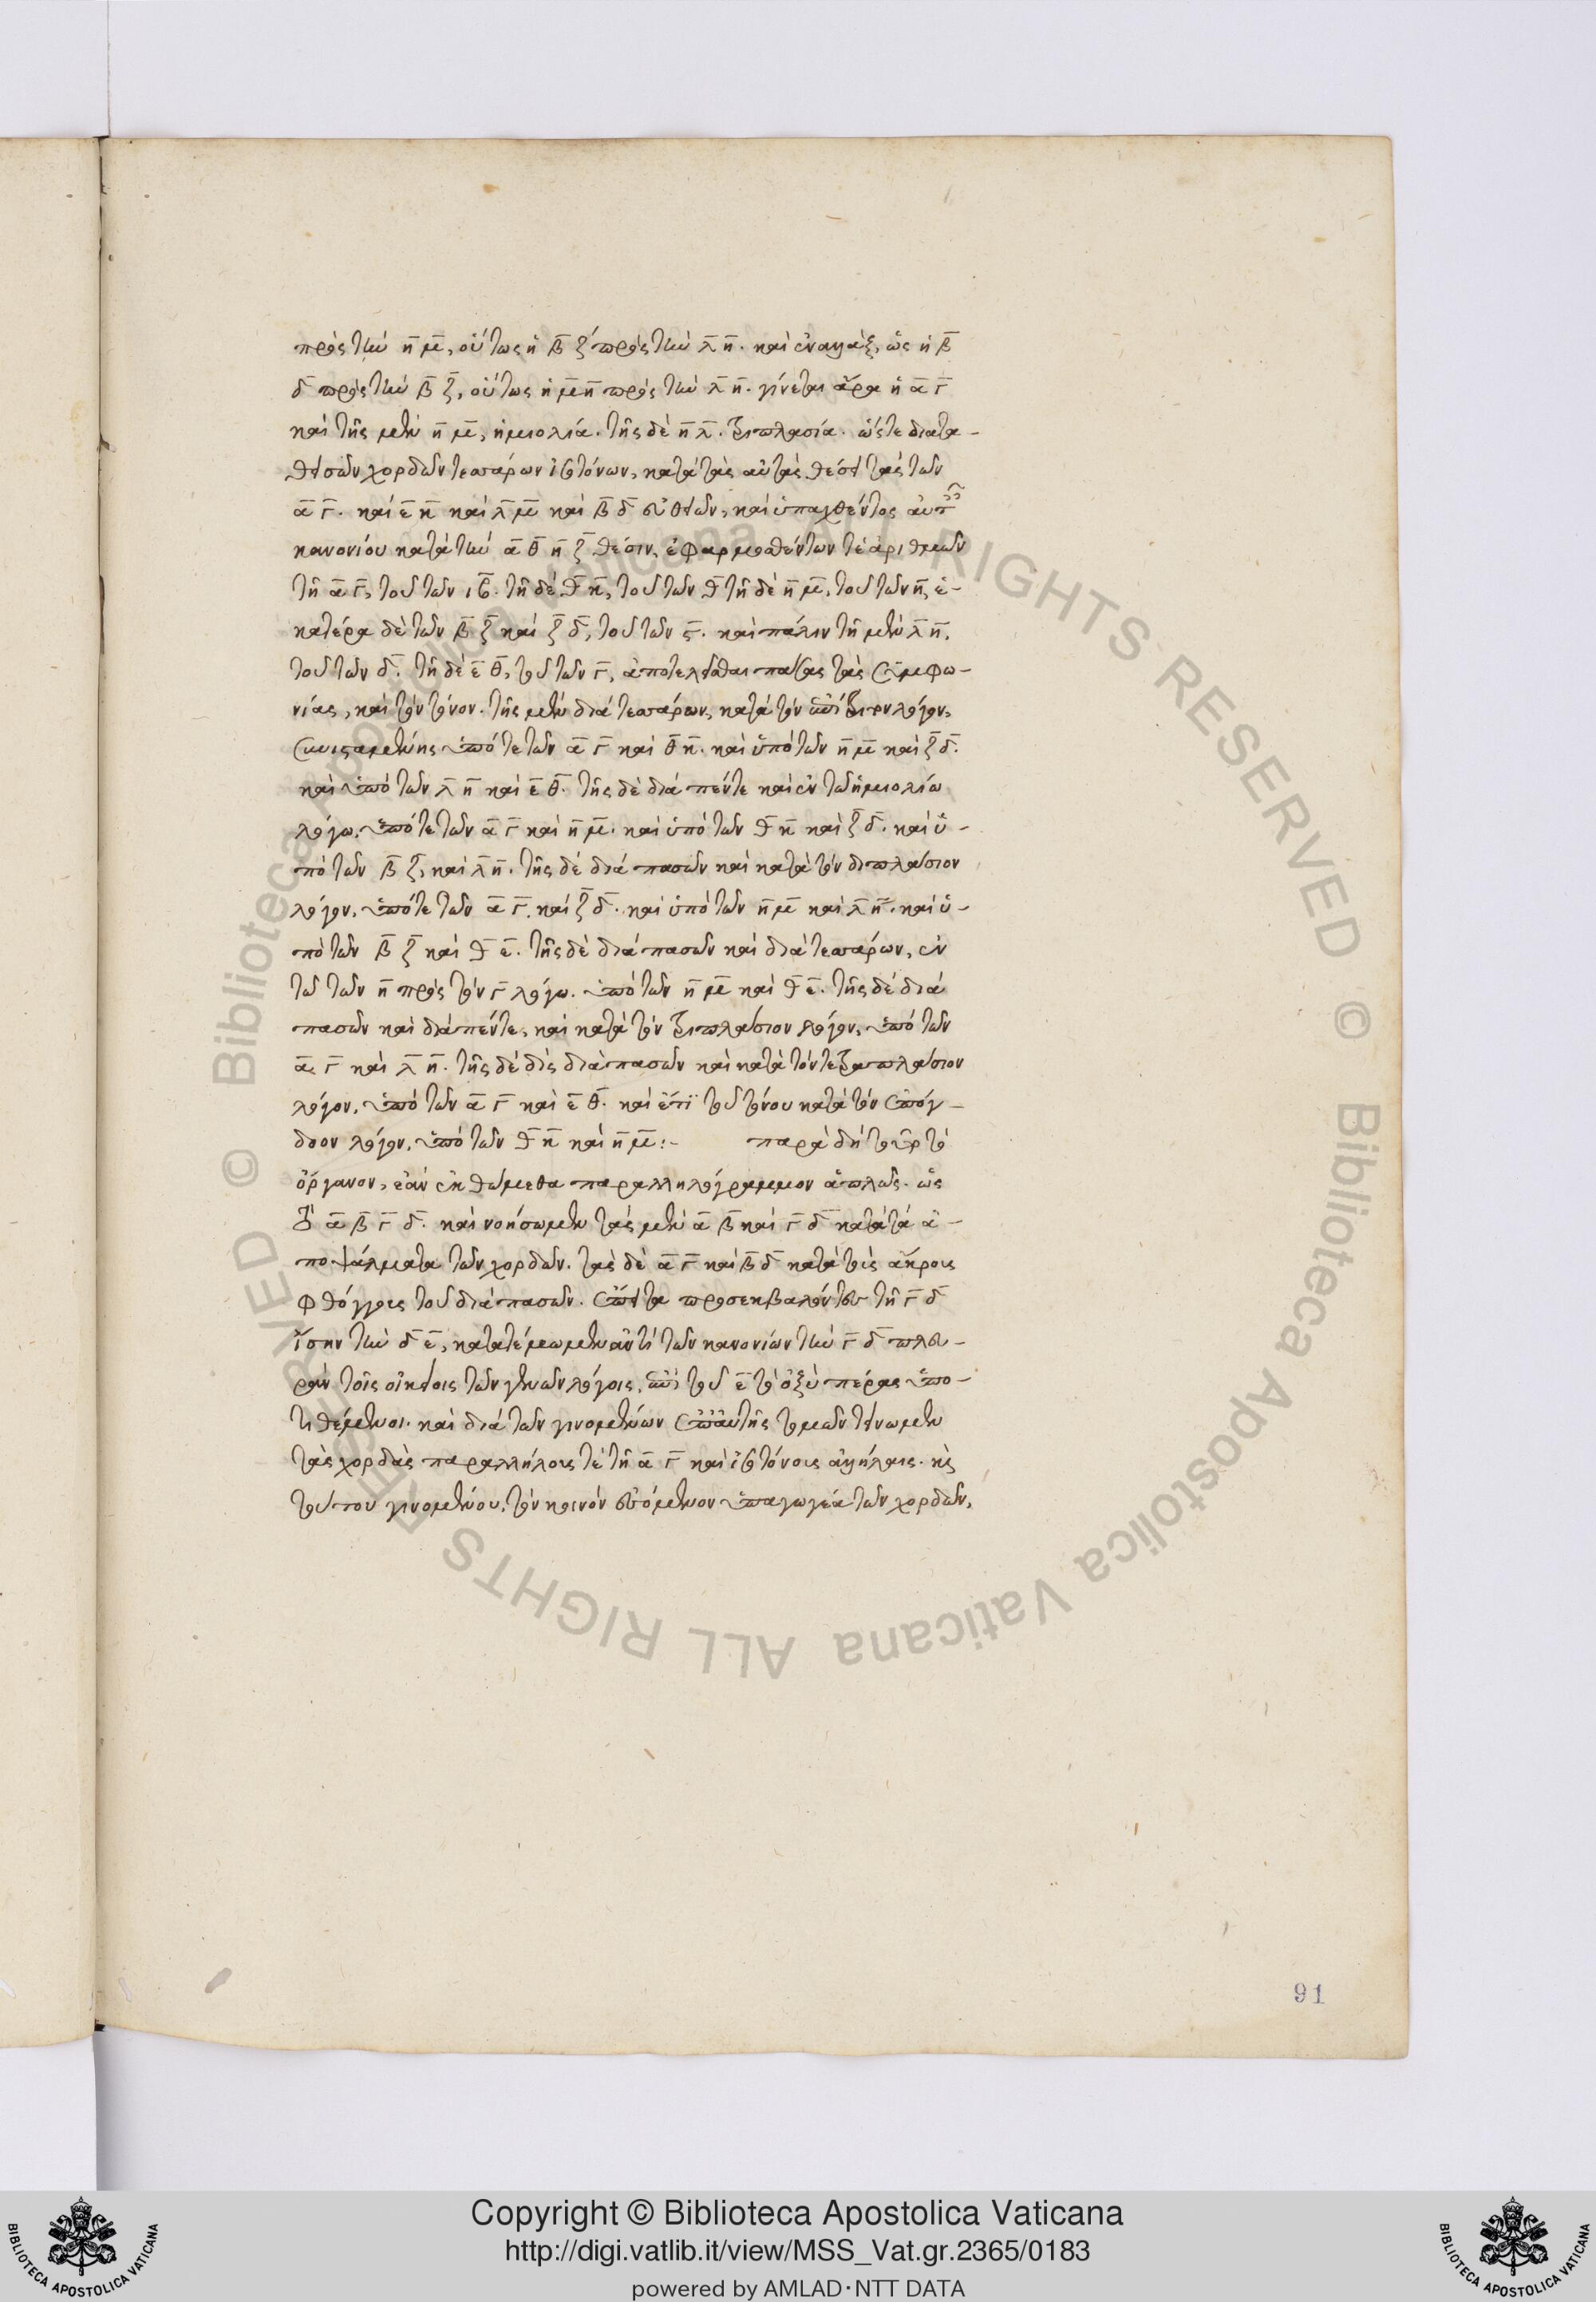 πρὸς τὴν η μ, οὕτως ἡ β ζ πρὸς τὴν λ η. καὶ ἐναλλὰξ, ὡς ἡ β
δ πρὸς τὴν β ζ, οὕτως ἡ μ η πρὸς τὴν λ η. γίνεται ἄρα ἡ α γ
καὶ τῆς μὲν η μ, ἡμιολία. τῆς δὲ η λ. τριπλασία. ὥστε διατα-
θεισῶν χορδῶν τεσσάρων ἰσοτόνων, κατὰ τὰς αὐτὰς θέσει ταῖς τῶν
α γ. καὶ ε κ καὶ λ μ καὶ β δ εὐθειῶν, καὶ ὑπαχθέντος αὐτοῦ
κανονίου κατὰ τὴν α θ η ζ θέσιν, ἐφαρμοσθέντων τὲ ἀριθμῶν
τῇ α γ, τοῦ τῶν ιβ. τῇ δὲ θ κ, τοῦ τῶν θ τῇ δὲ η μ, τοῦ τῶν η, ἑ-
κατέρα δὲ τῶν β ζ καὶ ζ δ, τοῦ τῶν ς. καὶ πάλιν τῇ μὲν λ η,
τοῦ τῶν δ. τῇ δὲ ε θ, τοῦ τῶν γ, ἀποτελεῖσθαι πάσας τὰς συμφω-
νίας, καὶ τὸν τόνον. τῆς μὲν διὰ τεσσάρων, κατὰ τὸν ἐπίτριτον λόγον,
συνισταμένης ὑπό τε τῶν α γ καὶ θ κ. καὶ ὑπὸ τῶν η μ καὶ ζ δ.
καὶ ὑπὸ τῶν λ η καὶ ε θ. τῆς δὲ διὰ πέντε καὶ ἐν τῶ ἡμιολίω
λόγω. ὑπό τε τῶν α γ καὶ η μ. καὶ ὑπὸ τῶν θ κ καὶ ζ δ. καὶ ὑ-
πὸ τῶν β ζ, καὶ λ η. τῆς δὲ διὰ πασῶν καὶ κατὰ τὸν διπλάσιον
λόγον. ὑπό τε τῶν α γ. καὶ ζ δ. καὶ ὑπὸ τῶν η μ καὶ λ η. καὶ ὑ-
πὸ τῶν β ζ καὶ θ ε. τῆς δὲ διὰ πασῶν καὶ διὰ τεσσάρων, ἐν
τῶ τῶν η πρὸς τὸν γ λόγω. ὑπὸ τῶν η μ καὶ θ ε. τῆς δὲ διὰ
πασῶν καὶ διὰ πέντε, καὶ κατὰ τὸν τριπλάσιον λόγον, ὑπὸ τῶν
α γ καὶ λ η. τῆς δὲ δὶς διὰ πασῶν καὶ κατὰ τὸν τετραπλάσιον
λόγον, ὑπὸ τῶν α γ καὶ ε θ. καὶ ἔτι τοῦ τόνου κατὰ τὸν ἐπόγ-
δοον λόγον, ὑπὸ τῶν θ κ καὶ η μ :- παρὰ δὴ τοῦτο τὸ
ὄργανον, ἐὰν ἐκθώμεθα παραλληλόγραμμον ἁπλῶς. ὡς
τὸ α β γ δ. καὶ νοήσωμεν τὰς μὲν α β καὶ γ δ κατὰ τὰ ἀ-
ποψάλματα τῶν χορδῶν. τὰς δὲ α γ καὶ β δ κατὰ τοὺς ἄκρους
φθόγγους τοῦ διὰ πασῶν. ἔπειτα προσεκβαλόντες τῇ γ δ
ἴσην τὴν δ ε, κατατέμωμεν ἀντὶ τῶν κανονίων τὴν γ δ πλευ-
ρὰν τοῖς οἰκείοις τῶν γενῶν λόγοις, ἐπὶ τοῦ ε τὸ ὀξὺ πέρας ὑπο-
τιθέμενοι. καὶ διὰ τῶν γινομένων ἐπ' αὐτῆς τομῶν τείνωμεν
τὰς χορδὰς παραλλήλους τὲ τῇ α γ καὶ ἰσοτόνους ἀλλήλαις. κἂς
τούτου γινομένου, τὸν κοινὸν ἐσόμενον ὑπαγωγέα τῶν χορδῶν,
91
Copyright © Biblioteca Apostolica Vaticana
http://digi.vatlib.it/view/MSS_Vat.gr.2365/0183
powered by AMLAD·NTT DATA